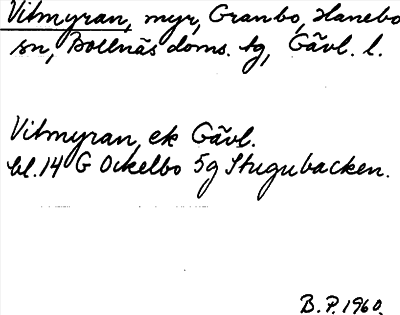 Vitmyran, myr, Granbo, Hanebo
sn, Bollnäs doms. tg, Gävl. l.
Vitmyran, ek Gävl.
bl. 14 G Ockelbo 5g Stugubacken.
B.P. 1960.